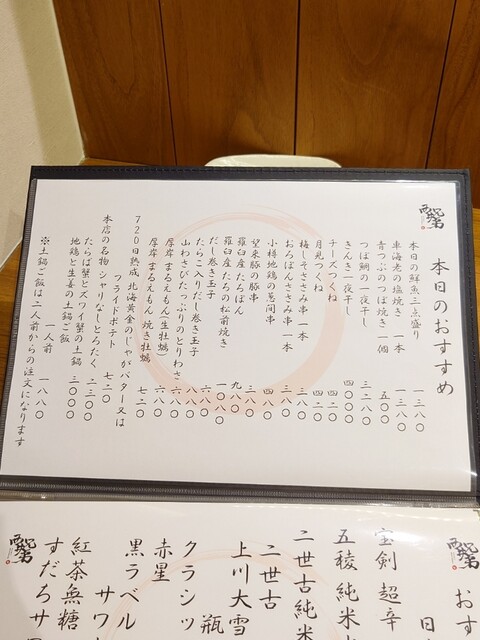 本日のおすすめ
本日の鮮魚三点盛り 一三八〇
車海老の塩焼き 一本 一三八〇
青つぶのつぼ焼き 一個 五〇〇
つぼ鯛の一夜干し 三二八〇
きんき一夜干し 四〇〇〇
チーズつくね 四二〇
月見つくね 四二〇
梅しそささみ串 一本 三八〇
おろぽんささみ串 一本 三八〇
小樽地鶏の葱間串 四八〇
望来豚の豚串 三八〇
羅臼産たちぽん 九八〇
羅臼産たちの松前焼き 一〇八〇
だし巻き玉子 六八〇
たらこ入りだし巻き玉子 八八〇
山わさびたっぷりのとりわさ 六八〇
厚岸まるえもん(生牡蠣) 六八〇
厚岸まるえもん 焼き牡蠣 七二〇
720日熟成 北海黄金のじゃがバター又は
フライドポテト 七二〇
本店の名物 シャリなしとろたく 二三〇〇
たらば蟹とズワイ蟹の土鍋
地鶏と生姜の土鍋ご飯 三〇〇〇
一人前 一八八〇
※土鍋ご飯は二人前からの注文になります
おす
日
宝剣 超辛
五稜 純米
二世古純米
二世古
上川大雪
瓶
クラシッ
赤星
黒ラベル
サワ
紅茶無糖
すだちサ